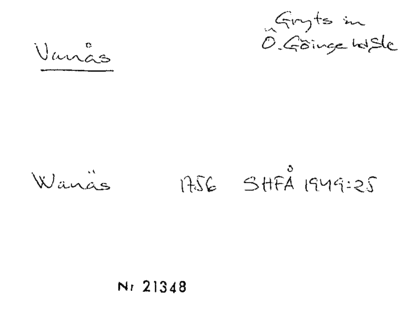 Vanås
Gryts sn
Ö. Göinge hd, Sk
Wanäs 1756 SHFÅ 1949:25
Nr 21348